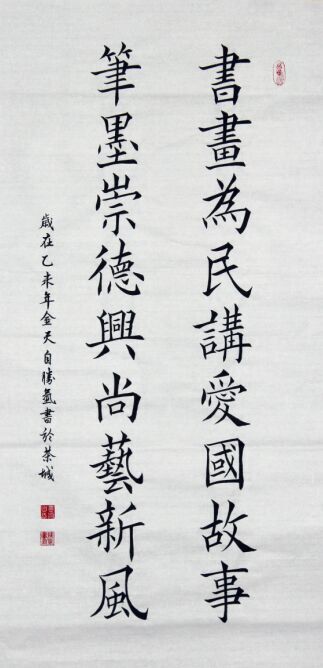 書畫為民講愛國故事
筆墨崇德興尚藝新風
歲在乙未年金天自勝氣書於茶城